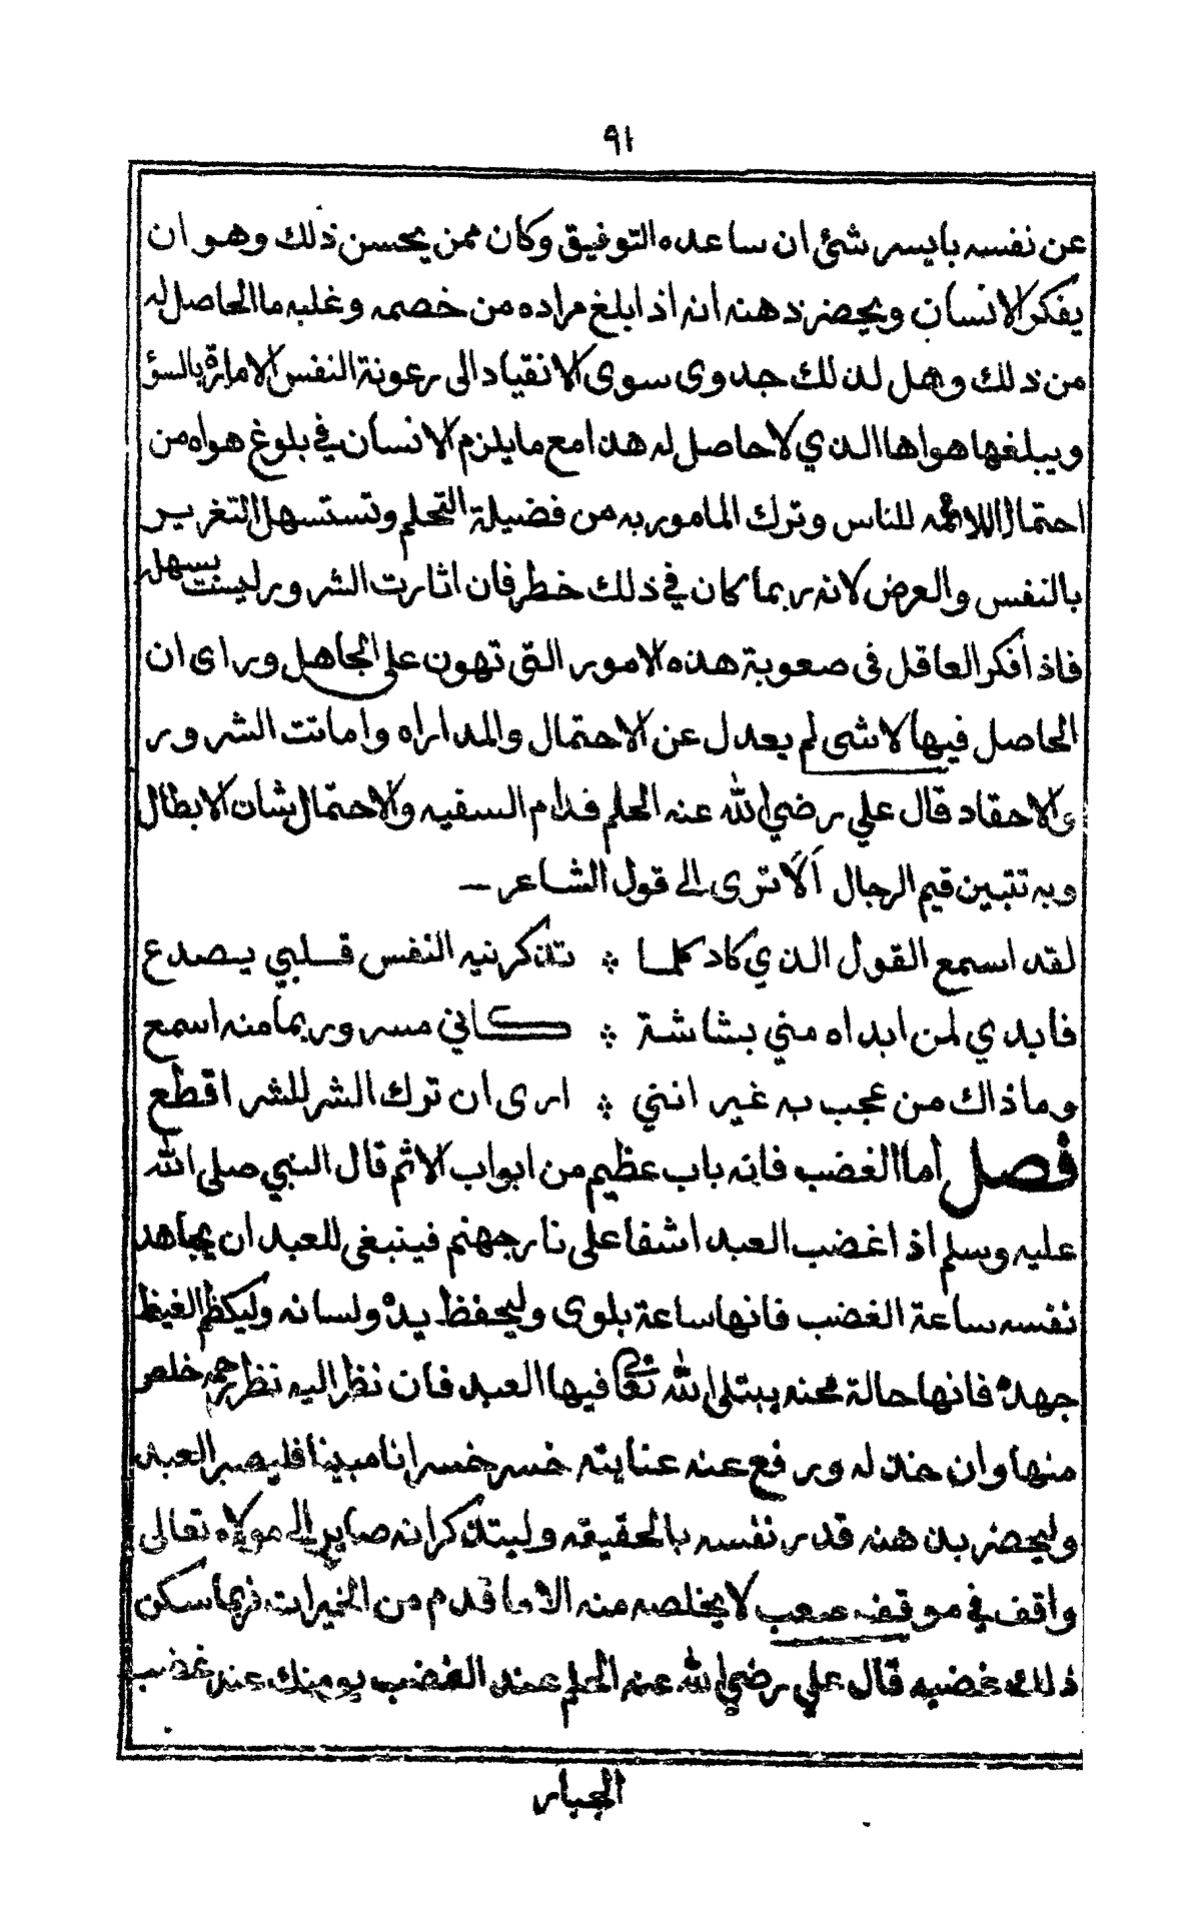 ٩١
عن نفسه بايسر شئ ان ساعده التوفيق وكان ممن يحسن ذلك وهو ان
يفكر الانسان ويحضر ذهنه انه اذا بلغ مراده من خصمه وغلبه ما الحاصل له
من ذلك وهل لذلك جدوى سوى الانقياد الى رعونة النفس الامارة بالسؤ
ويبلغها هواها الذي لا حاصل له هذا مع ما يلزم الانسان في بلوغ هواه من
احتمال اللائمه للناس وترك المامور به من فضيلة التحلم وتستسهل التغرير
بالنفس والعرض لانه ربما كان في ذلك خطر فان اثارت الشرور ليست بسهل
فاذا فكر العاقل فى صعوبة هذه الامور التى تهون على الجاهل وراى ان
الحاصل فيها لاشى لم يعدل عن الاحتمال والمداراه واماتت الشرور
والاحقاد قال علي رضي الله عنه الحلم فدام السفيه والاحتمال شان الابطال
وبه تتبين قيم الرجال ألا ترى الى قول الشاعر
لقد اسمع القول الذي كاد كلما ؞ تذكرنيه النفس قلبي يصدع
فابدي لمن ابداه مني بشاشة ؞ كاني مسرور بما منه اسمع
وماذاك من عجب به غير انني ؞ ارى ان ترك الشر للشر اقطع
فصل أما الغضب فانه باب عظيم من ابواب الاثم قال النبي صلى الله
عليه وسلم اذا غضب العبد اشفا على نار جهنم فينبغى للعبد ان يجاهد
نفسه ساعة الغضب فانها ساعة بلوى وليحفظ يده ولسانه وليكظم الغيظ
جهده فانها حالة محنه يبتلى الله تعالى فيها العبد فان نظر اليه نظر رحمه خلص
منها وان خذله ورفع عنه عنايته خسر خسرانا مبينا فليصبر العبد
وليحضر بذهنه قدر نفسه بالحقيقه وليتذكر انه صاير الى مولاه تعالى
واقف في موقف صعب لا يخلصه منه الا ما قدم من الخيرات فربما سكن
ذلك غضبه قال علي رضي الله عنه الحلم عند الغضب يومنك عند غضب
الجبار